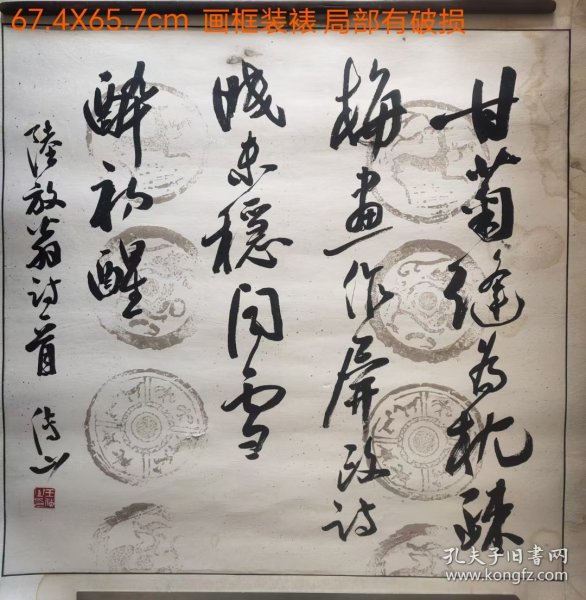 67.4X65.7cm 画框装裱 局部有破损
甘菊縫為枕疎
梅畫作屏改詩
眠未穩聞雪
醉初醒
陸放翁詩一首
孔夫子旧书网
www.kongfz.com